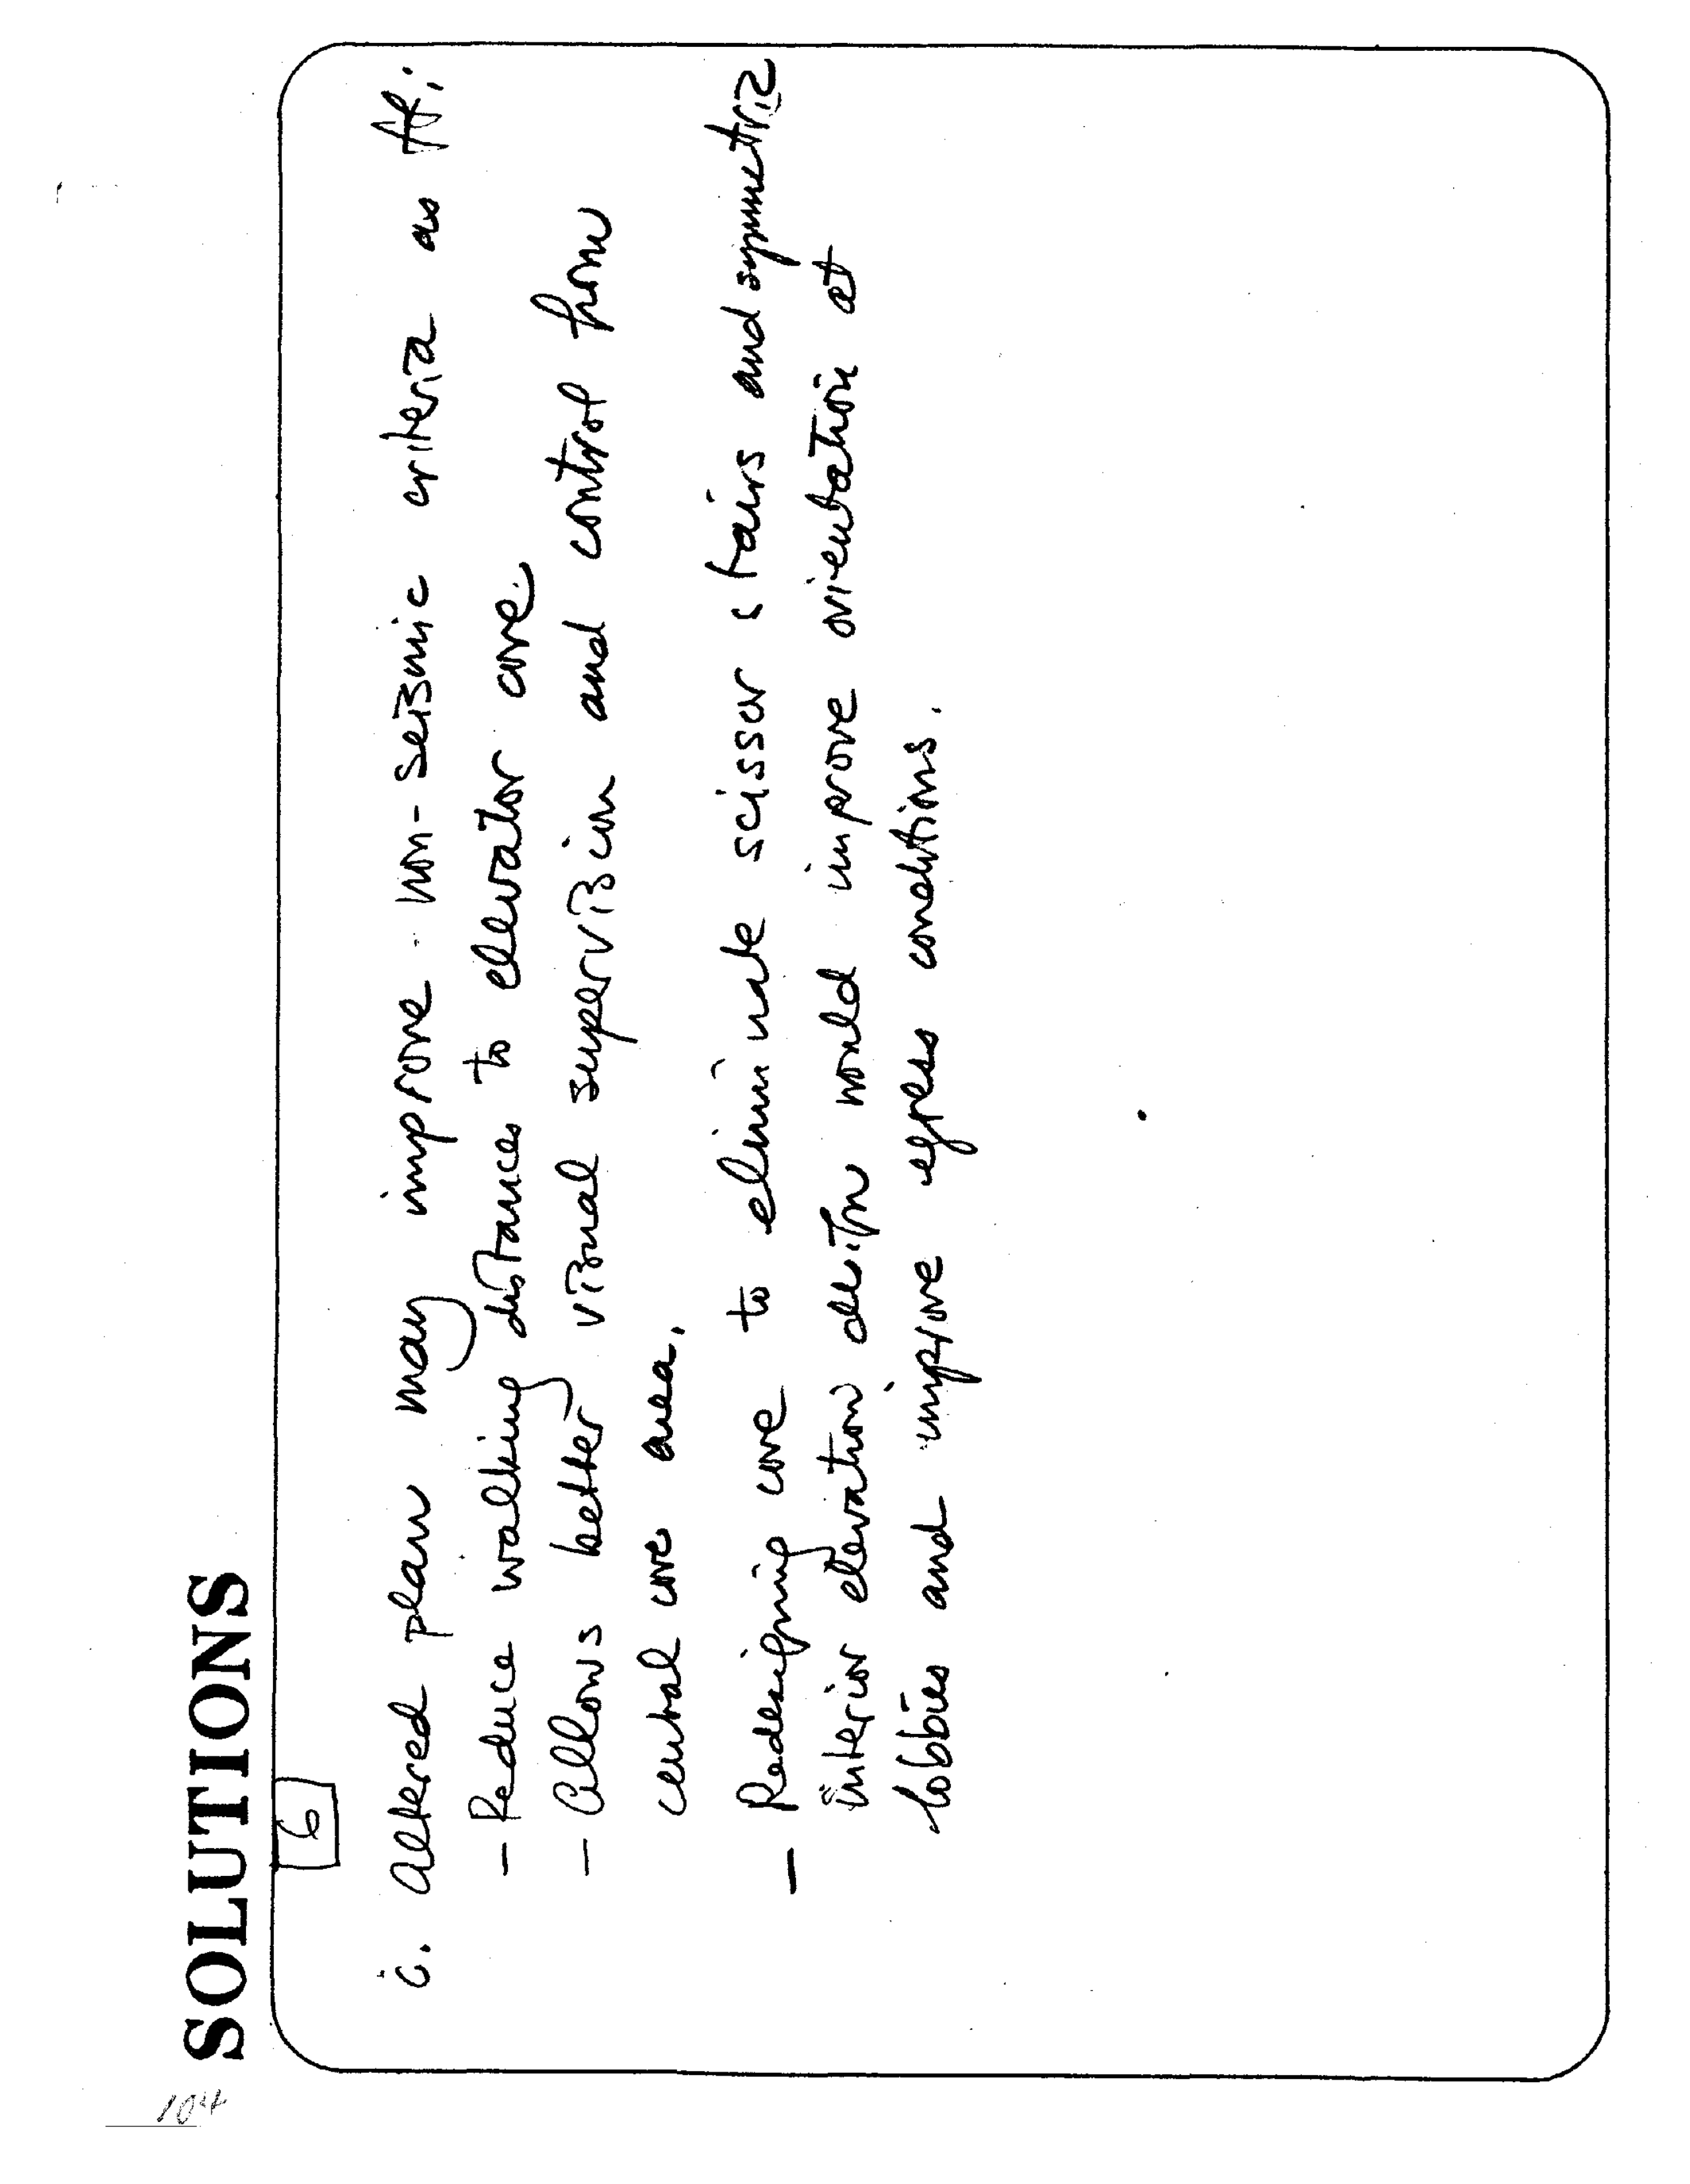 104
SOLUTIONS
6
c. Altered plan may improve non-seismic criteria as ff:
- Reduce walking distances to elevator core.
- Allows better visual supervision and control from
central core area.
- Redesigning core to eliminate scissor stairs and symmetric
interior elevation design would improve orientation at
lobbies and improve egress conditions.